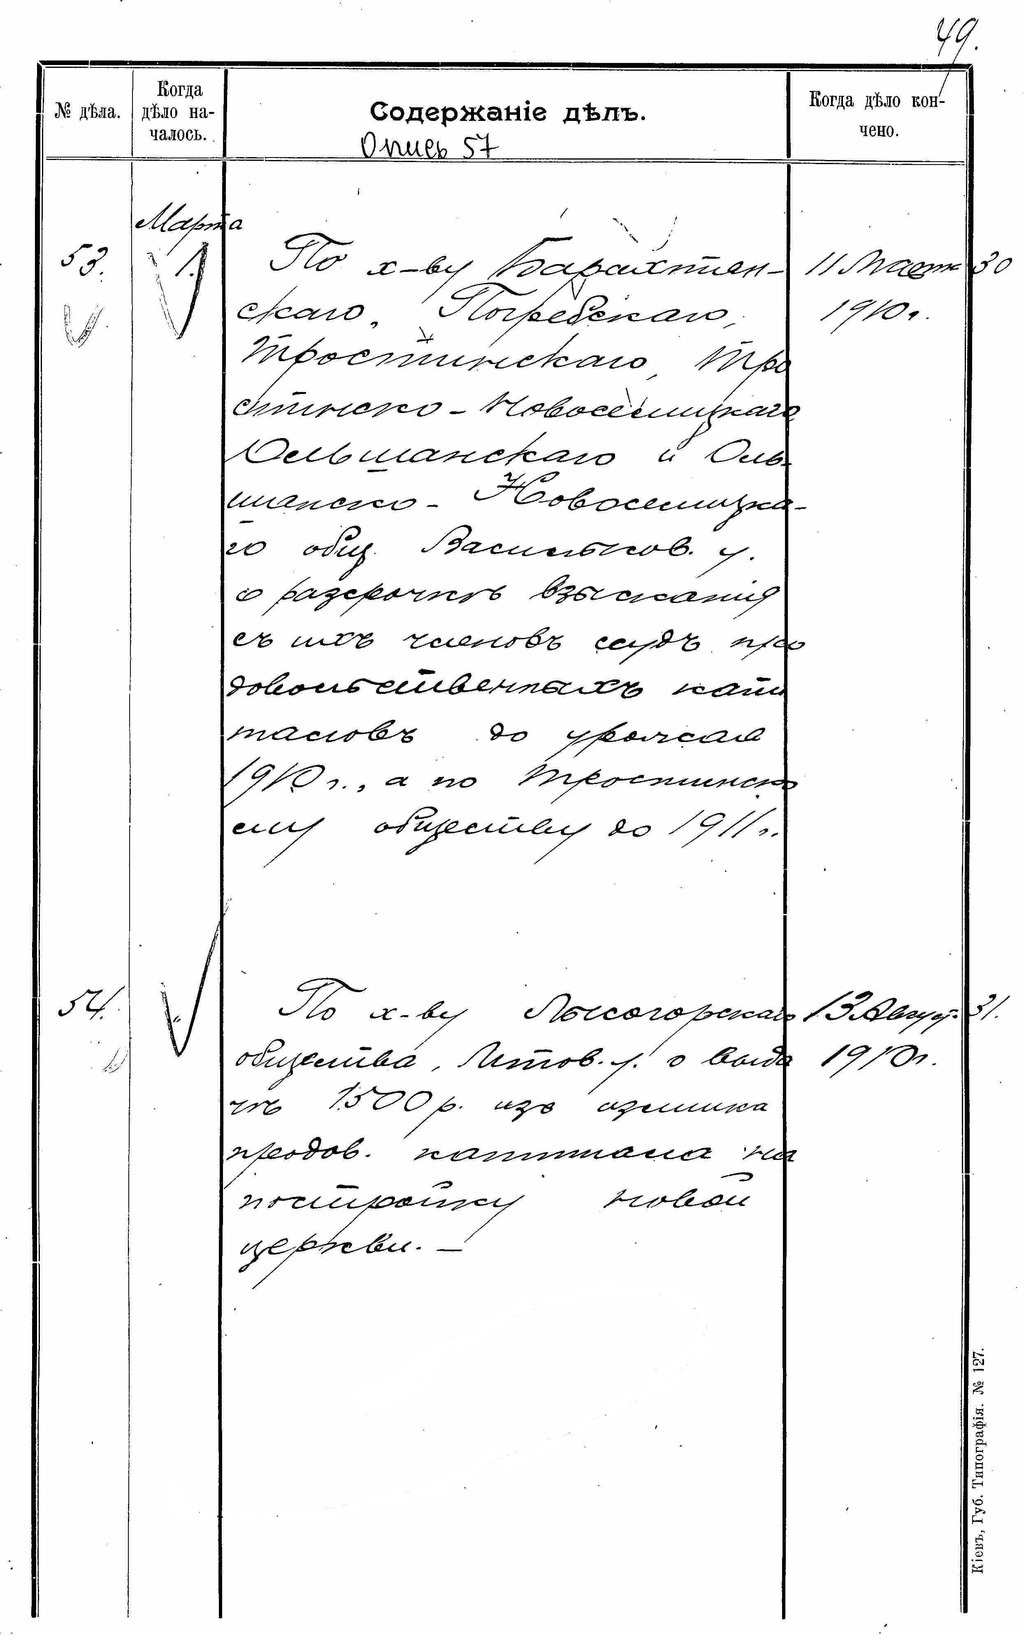 49.
№ дѣла.
Когда
дѣло на-
чалось.
Содержаніе дѣлъ.
Опись 57
Когда дѣло кон-
чено.
Марта
53.
1.
По х-ву Барахтян-
скаго, Погребскаго,
Тростинскаго, Тро
стинско-Новоселицкаго
Ольшанскаго и Оль-
шанско-Новоселицка-
го общ. Васильков. у.
о разсрочкѣ взысканія
съ ихъ членовъ ссудъ про
довольственныхъ капи
таловъ до урожая
1910 г., а по Тростинско
му обществу до 1911 г.
11 Марта
1910 г.
30
54.
"
По х-ву Лысогорскаго
общества, у. о выда
чѣ 1500 р. изъ излишка
продов. капитала на
постройку новой
церкви. —
13 Август.
1910 г.
31.
Кіевъ, Губ. Типографія. № 127.